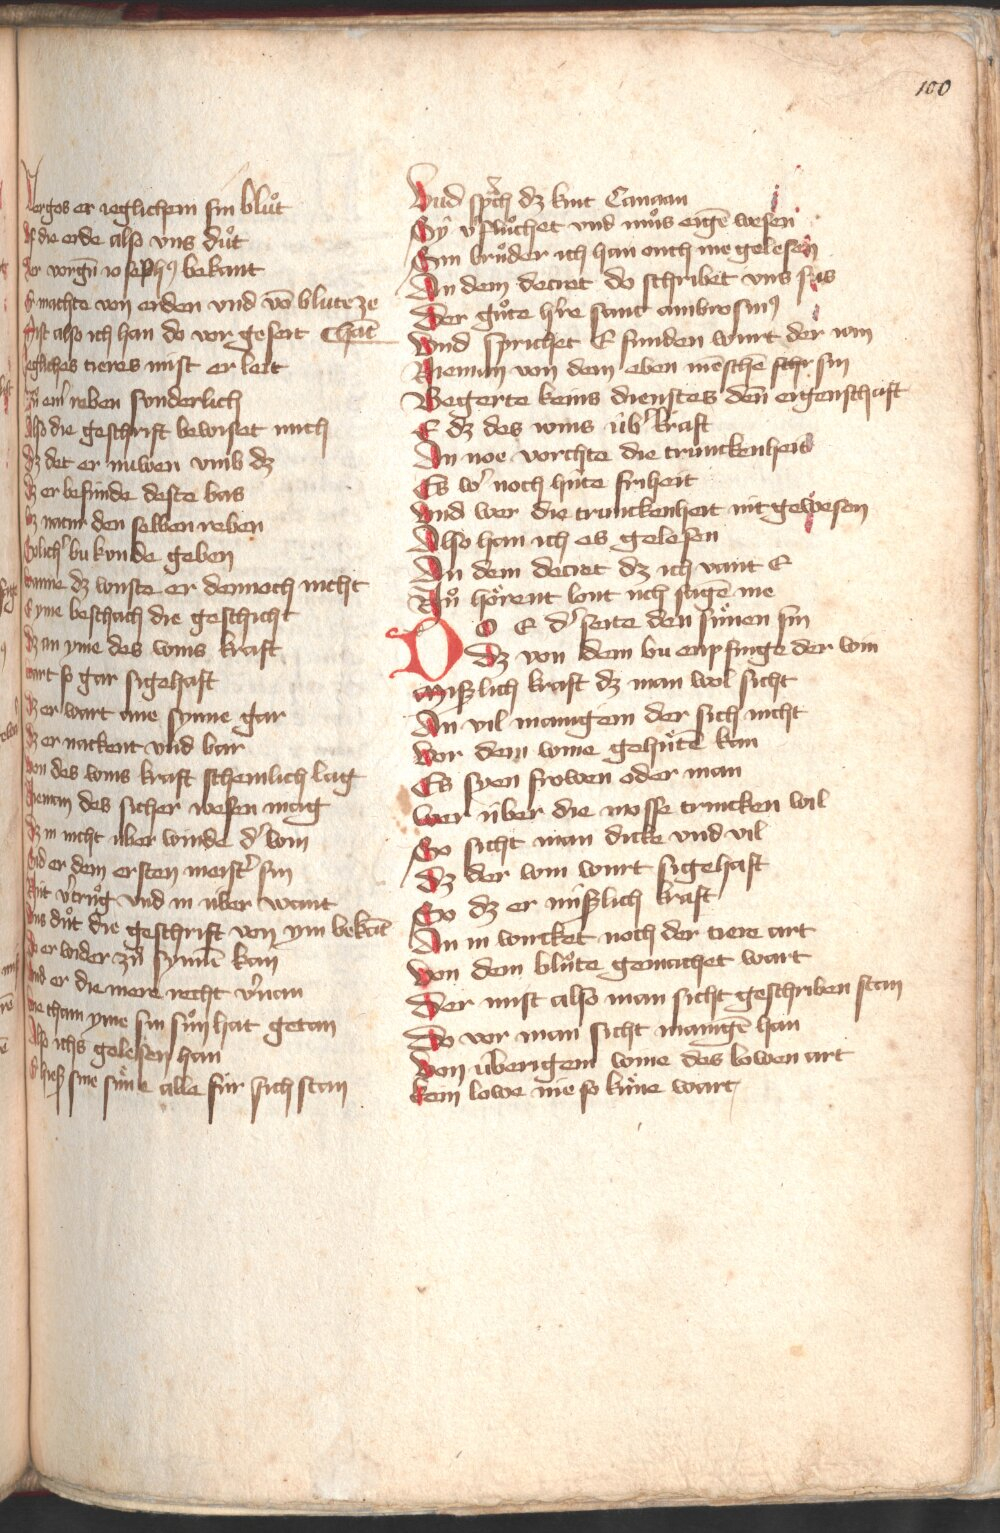 100
Vergos er ieglichem sin blůt
Vf die erde also vns důt
Der vorgñ ioseph9 bekant
Er machte von erden vnd võ blute ze
Mist also ich han do vor geseit hat̄
Iegliches tieres mist er leit
Zů eim̄ reben sunderlich
Also die geschrift bewiset mich
Dz det er nuwen vmb dz
Dz er befunde deste bas
Dz natur den selben reben
Solich̾ bu kunde geben
wanne dz wuste er dennoch nicht
Eyme beschach die geschicht
Dz an yme des wins kraft
wart so gar sigehaft
Dz er wart ane synne gar
Dz er nackent vnd bar
von des wins kraft schemlich lag
Nieman des sicher wesen mag
Dz in nicht uber winde d̾ win
Sid er dem ersten meist̾ sin
Nit v̾trůg vnd in uber want
Uns důt die geschrift von ym bekãt
Do er wider zů synnē kam
Vnd er die mere recht v̾nam
wie cham yme sin sůn hat getan
Also ichs gelesen han
Er hiesz sine sůne alle fur sich stan
Vnd sprͣch dz kint Canaan
Sy v̾flůchet vnd můs eigē wesen
Sin brůder ich han ouch me gelesen
An dem decret do schribet vns sus
Der gůte h̾re sant ambrosiu9
Vnd sprichet E funden wurt der win
Nieman von dem eben mēschē sin
Begerte keins dienstes deñ eigenschaft
E dz des wins ub̾ kraft
An noe vorchte die trunckenheit
Es w̾ noch hute friheit
Vnd wer die trunckenheit nit gewesen
Also han ich es gelesen
An dem decret dz ich vant E
Nů hörent lont uch sagē me
DO E d̾ seite den sůnen sin
Dz von dem bu enpfinge der win
Miszlich kraft dz man wol sicht
An vil manigem der sich nicht
Vor dem wine gehůtē kan
Es syen frowen oder man
Wer uber die mosse trincken wil
So sicht man dicke vnd vil
Dz der win wurt sigehaft
So dz er miszlich kraft
An in wurcket noch der tiere art
Von dem blůte gemachet wart
Der mist also man sicht geschriben stan
Do vor man sicht manigē han
Von uberigem wine des lowen art
Kein lowe nie so kůne wart